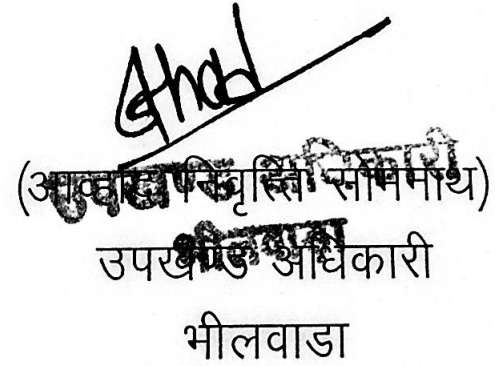 (आव्हाड निवृत्ति सोमनाथ)
उपखण्ड अधिकारी
भीलवाडा